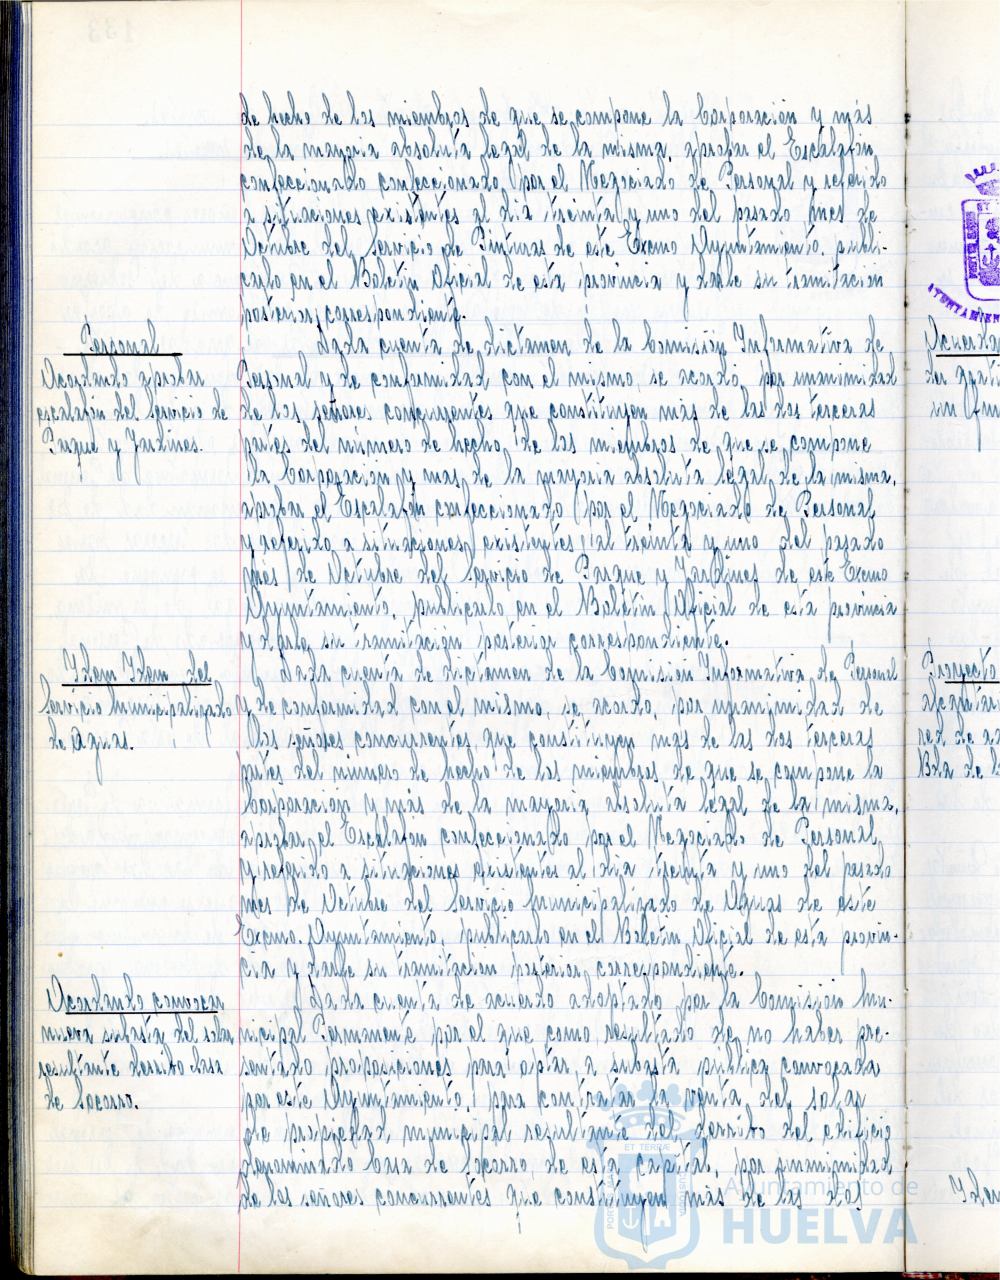 de hecho de los miembros de que se compone la Corporación y más
de la mayoria absoluta legal de la misma, aprobar el Escalafón
confeccionado confeccionado por el Negociado de Personal y referido
a situaciones existentes al dia treinta y uno del pasado mes de
Octubre del Servicio de Pinturas de este Excmo Ayuntamiento, publi-
carlo en el Boletin Oficial de esta provincia y darle su tramitación
posterior correspondiente.
Personal
Acordando aprobar
escalafón del Servicio de
Parque y Jardines.
Dada cuenta de dictamen de la Comisión Informativa de
Personal y de conformidad con el mismo, se acordó, por unanimidad
de los señores concurrentes que constituyen más de las dos terceras
partes del número de hecho de los miembros de que se compone
la Corporación y mas de la mayoria absoluta legal de la misma,
aprobar el Escalafón confeccionado por el Negociado de Personal
y referido a situaciones existentes al treinta y uno del pasado
mes de Octubre del Servicio de Parque y Jardines de este Excmo
Ayuntamiento, publicarlo en el Boletin Oficial de esta provincia
y darle su tramitación posterior correspondiente.
Idem Idem del
Servicio Municipalizado
de Aguas.
Dada cuenta de dictamen de la Comisión Informativa de Personal
y de conformidad con el mismo, se acordó, por unanimidad de
los señores concurrentes, que constituyen mas de las dos terceras
partes del número de hecho de los miembros de que se compone la
Corporacion y más de la mayoria absoluta legal de la misma,
aprobar el Escalafón confeccionado por el Negociado de Personal
y referido a situaciones existentes al dia treinta y uno del pasado
mes de Octubre del Servicio Municipalizado de Aguas de este
Excmo. Ayuntamiento, publicarlo en el Boletin Oficial de esta provin-
cia y darle su tramitacion posterior correspondiente.
Acordando convocar
nueva subasta del solar
resultante derribo Casa
de Socorro.
Dada cuenta de acuerdo adoptado por la Comisión Mu-
nicipal Permanente por el que como resultado de no haber pre-
sentado proposiciones para optar a subasta publica convocada
por este Ayuntamiento, para contratar la venta del solar
de propiedad municipal resultante del derribo del edificio
denominado Casa de Socorro de esta capital, por unanimidad
de los señores concurrentes que constituyen más de las dos
Ayuntamiento de
HUELVA